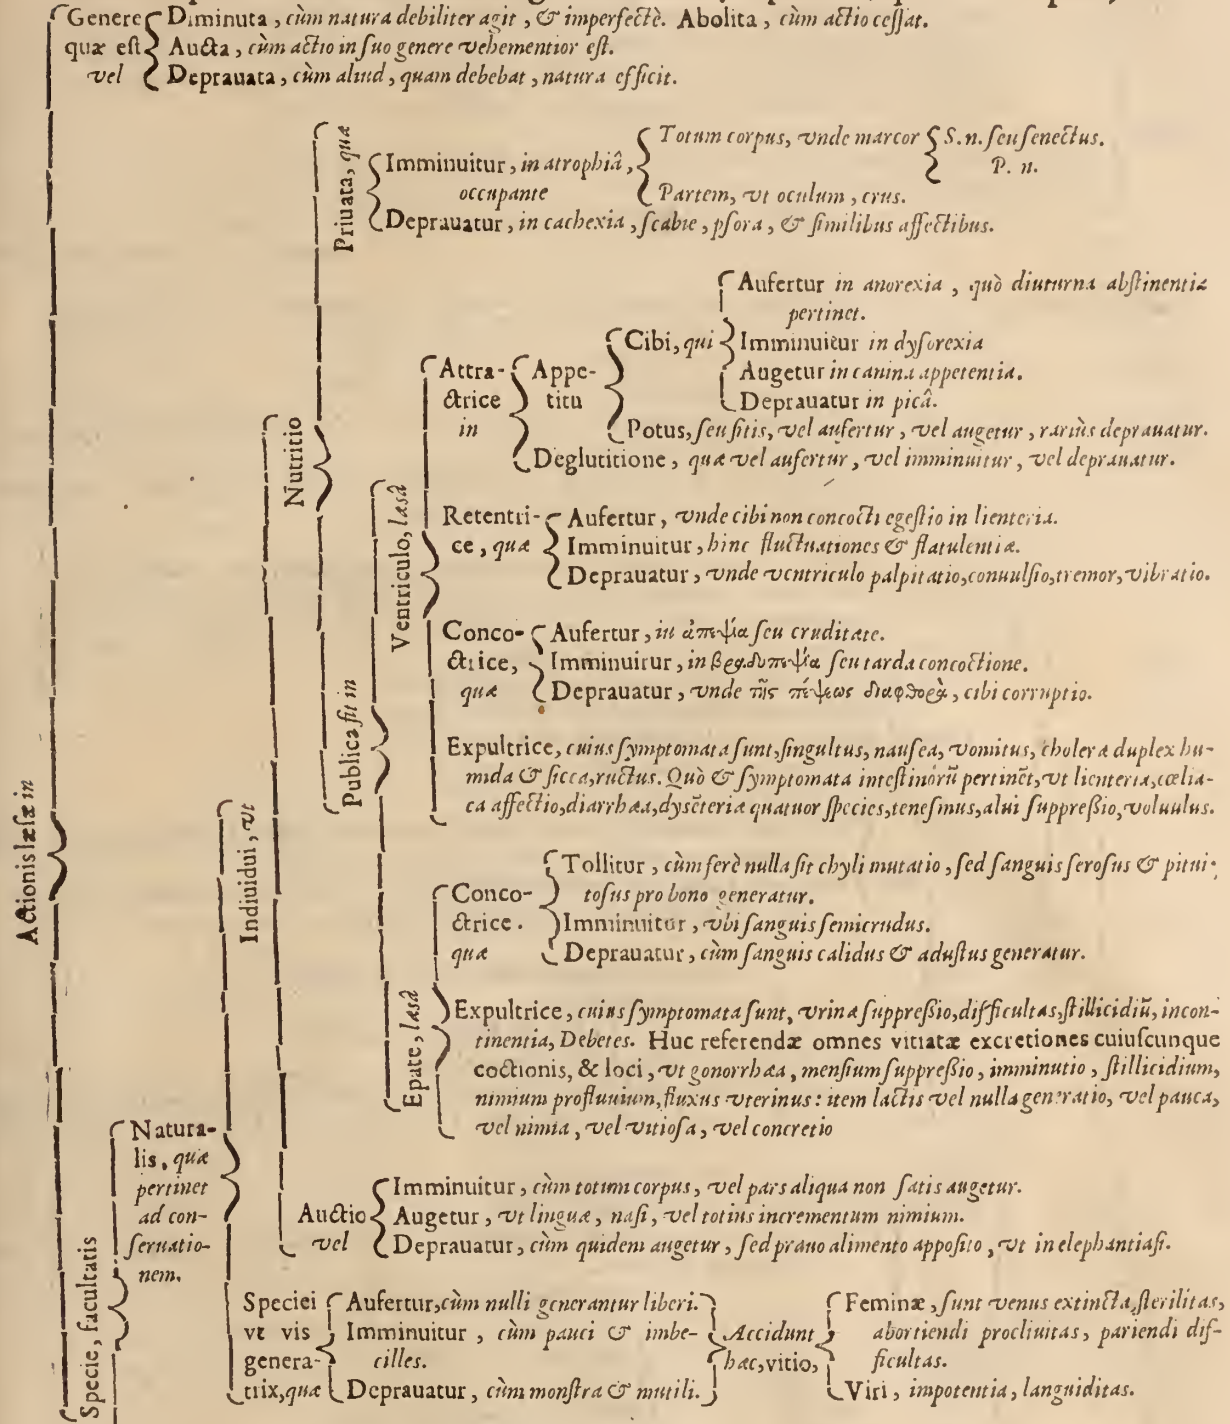 Genere Diminuta, cùm natura debiliter agit, & imperfectè. Abolita, cùm actio cessat.
quæ est Aucta, cùm actio in suo genere vehementior est.
vel Deprauata, cùm aliud, quam debebat, natura efficit.
Actionis læsæ in
Specie, facultatis
Natura-
lis, quæ
pertinet
ad con-
seruatio-
nem.
Indiuidui, vt
Nutritio
Priuata, quæ
Imminuitur, in atrophiâ,
occupante
Totum corpus, vnde marcor
S. n. seu senectus.
P. n.
Partem, vt oculum, crus.
Deprauatur, in cachexia, scabie, psora, & similibus affectibus.
Publica fit in
Ventriculo, læsâ
Attra-
ctrice
in
Appe-
titu
Cibi, qui
Aufertur in anorexia, quò diuturna abstinentia
pertinet.
Imminuitur in dysorexia
Augetur in canina appetentia.
Deprauatur in picâ.
Potus, seu sitis, vel aufertur, vel augetur, rariùs deprauatur.
Deglutitione, quæ vel aufertur, vel imminuitur, vel deprauatur.
Retentri-
ce, quæ
Aufertur, vnde cibi non concocti egestio in lienteria.
Imminuitur, hinc fluctuationes & flatulentiæ.
Deprauatur, vnde ventriculo palpitatio, conuulsio, tremor, vibratio.
Conco-
ctrice,
quæ
Aufertur, in ἀπεψία seu cruditate.
Imminuitur, in βραδυπεψία seu tarda concoctione.
Deprauatur, vnde τῆς πέψεως διαφθορὰ, cibi corruptio.
Expultrice, cuius symptomata sunt, singultus, nausea, vomitus, cholera duplex hu-
mida & sicca, ructus. Quò & symptomata intestinorũ pertinẽt, vt lienteria, cœlia-
ca affectio, diarrhæa, dysẽteriæ quatuor species, tenesmus, alui suppressio, voluulus.
Epate, læsâ
Conco-
ctrice.
quæ
Tollitur, cùm ferè nulla sit chyli mutatio, sed sanguis serosus & pitui-
tosus pro bono generatur.
Imminuitur, vbi sanguis semicrudus.
Deprauatur, cùm sanguis calidus & adustus generatur.
Expultrice, cuius symptomata sunt, vrinæ suppressio, difficultas, stillicidiũ, incon-
tinentia, Debetes. Huc referendæ omnes vitiatæ excretiones cuiuscunque
coctionis, & loci, vt gonorrhæa, mensium suppressio, imminutio, stillicidium,
nimium profluuium, fluxus vterinus: item lactis vel nulla generatio, vel pauca,
vel nimia, vel vitiosa, vel concretio
Auctio
vel
Imminuitur, cùm totum corpus, vel pars aliqua non satis augetur.
Augetur, vt linguæ, nasi, vel totius incrementum nimium.
Deprauatur, cùm quidem augetur, sed prauo alimento apposito, vt in elephantiasi.
Speciei
vt vis
genera-
trix, quæ
Aufertur, cùm nulli generantur liberi.
Imminuitur, cùm pauci & imbe-
cilles.
Deprauatur, cùm monstra & mutili.
Accidunt
hac, vitio,
Feminæ, sunt venus extincta, sterilitas,
abortiendi procliuitas, pariendi dif-
ficultas.
Viri, impotentia, languiditas.